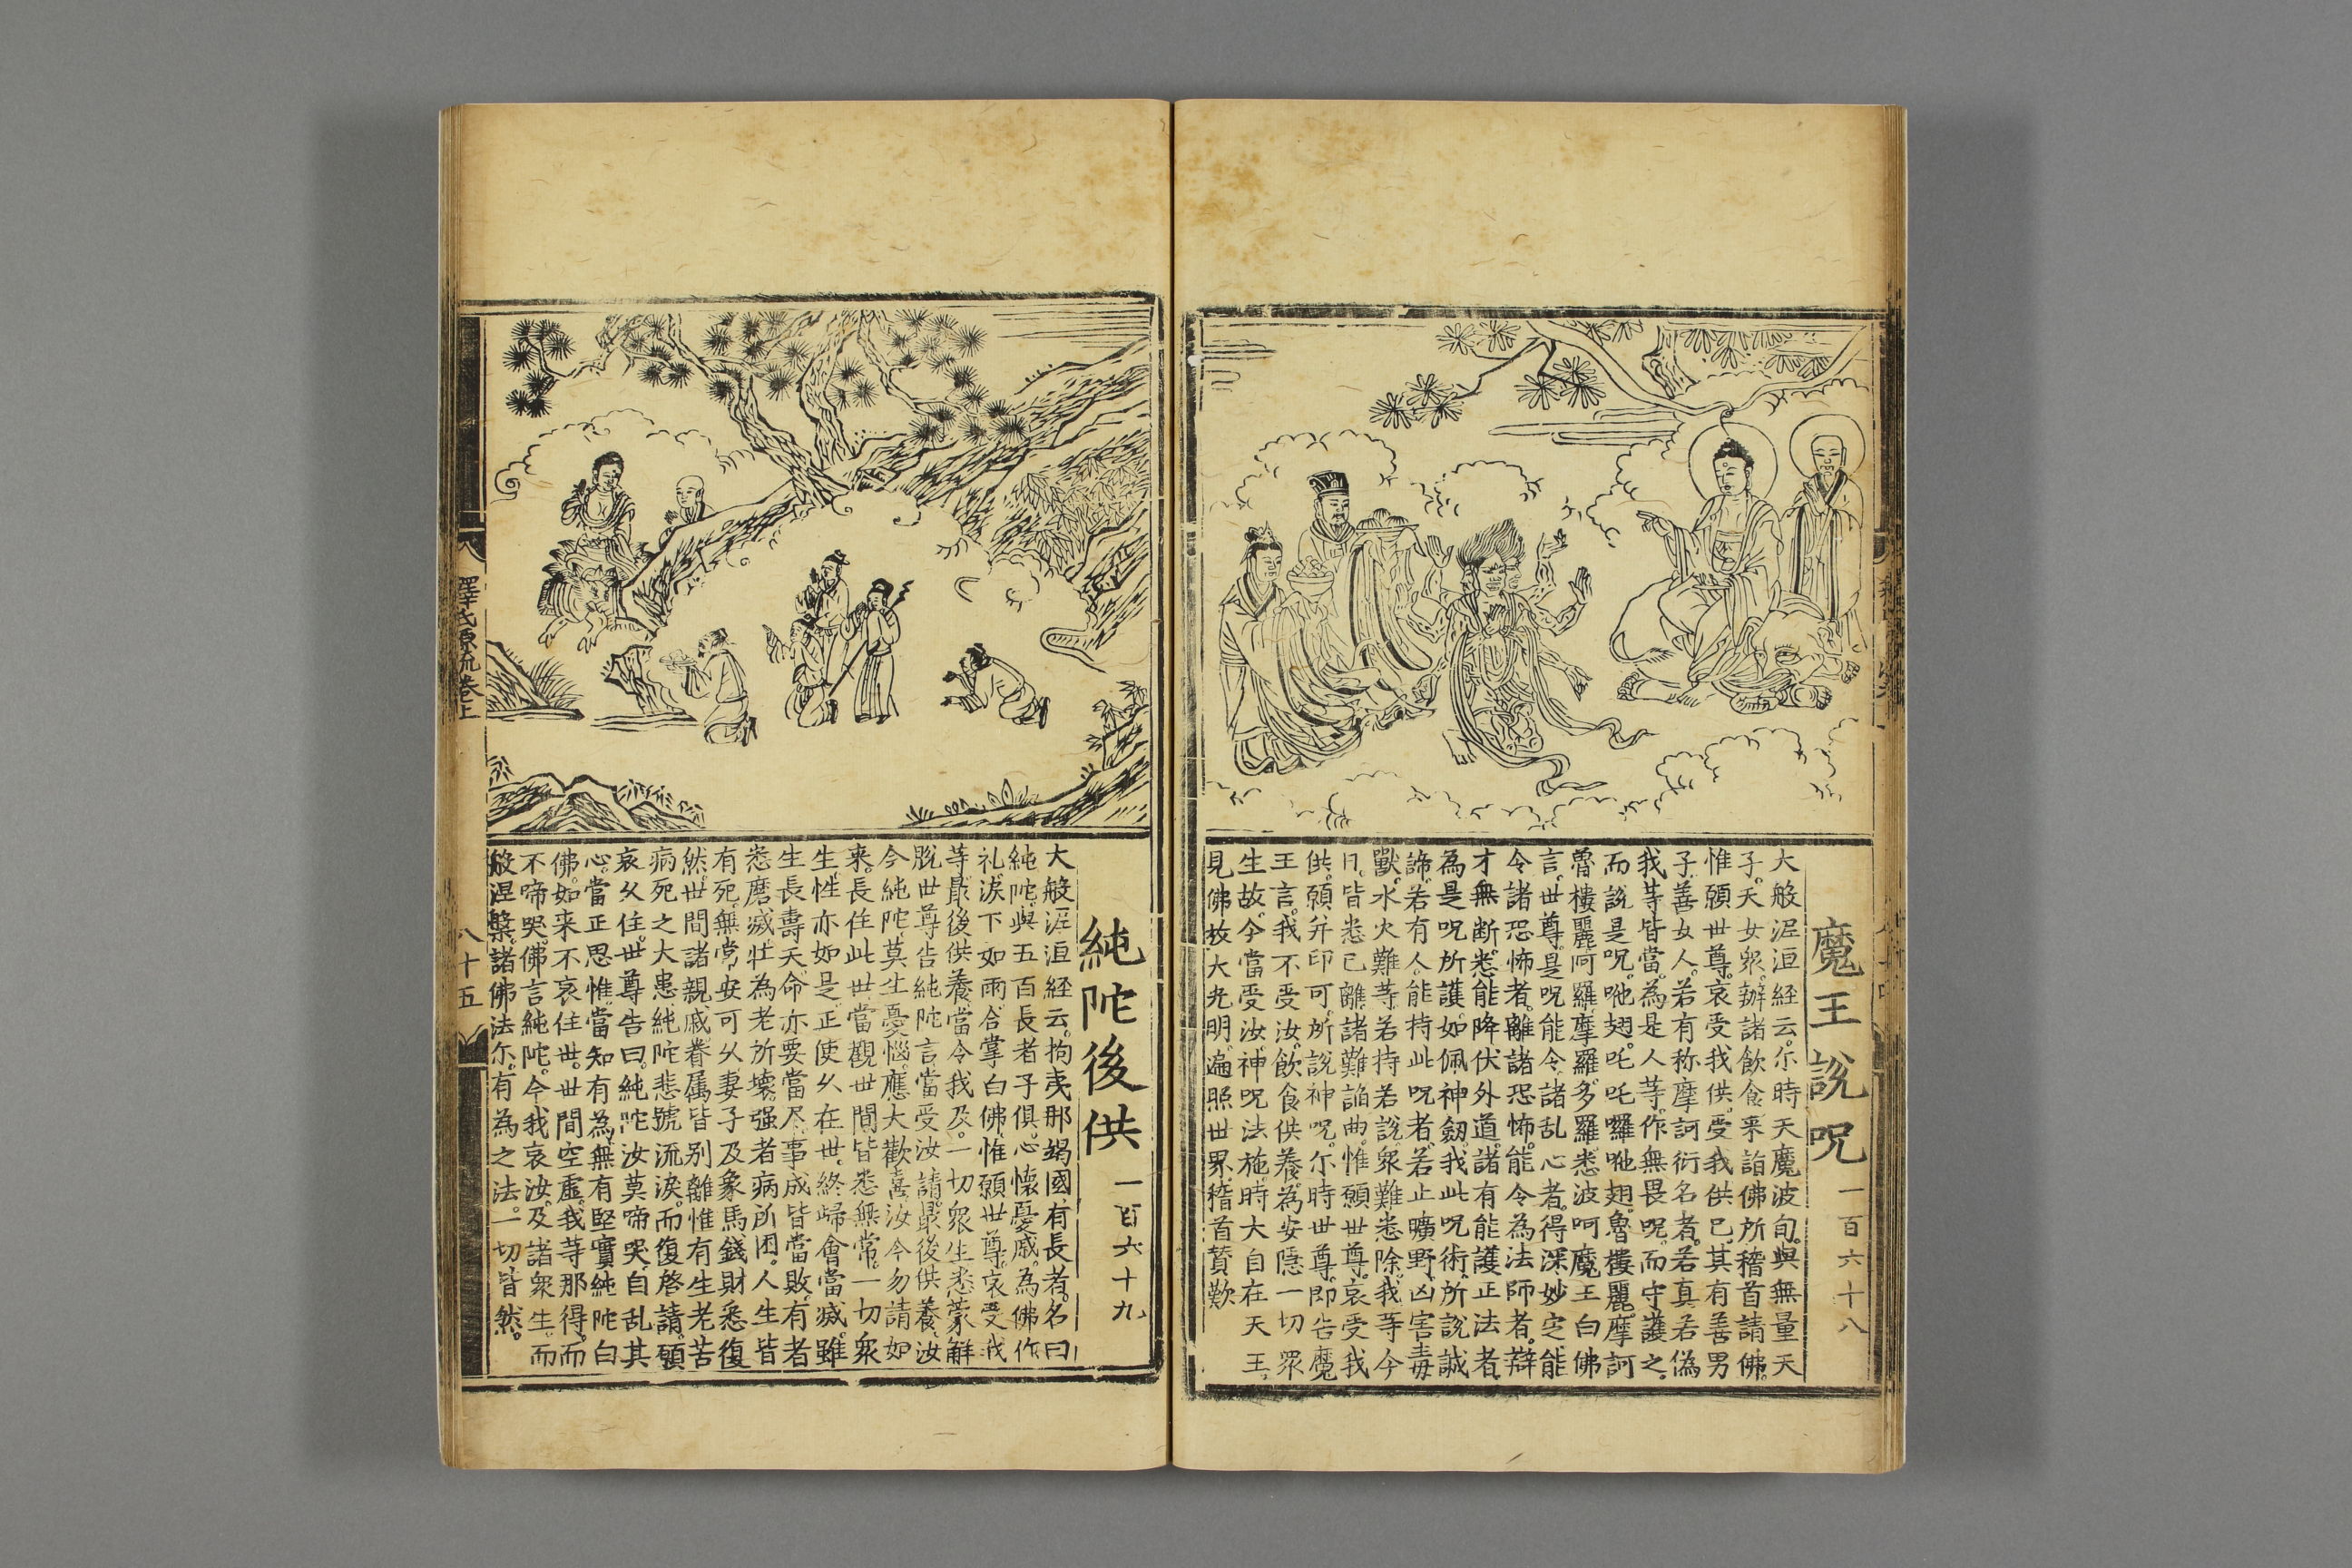 魔王說呪 一百六十八
大般泥洹経云。尓時天魔波旬。與無量天
子。天女衆。辦諸飲食。来詣佛所。稽首請佛。
惟願世尊。哀受我供。受我供已。其有善男
子。善女人。若有称摩訶衍名者。若真若偽
我等皆當。為是人等。作無畏呪。而守護之。
而說是呪。吔翅。吒吒囉吔翅。魯樓麗。摩訶
魯樓麗阿羅。摩羅。多羅。悉波呵。魔王白佛
言。世尊。是呪能令諸乱心者。得深妙定。能
令諸恐怖者。離諸恐怖。能令為法師者。辯
才無断。悉能降伏外道。諸有能護正法者。
為是呪所護。如佩神劔。我此呪術。所說誠
諦。若有人。能持此呪者。若止曠野。凶害毒
獸。水火難等。若持若說。衆難悉除。我等今
日。皆悉已離諸難諂曲。惟願世尊。哀受我
供。願并印可。所說神呪。尓時世尊。即告魔
王言。我不受汝。飲食供養。為安隠一切眾
生故。今當受汝。神呪法施。時大自在天王。
見佛放大光明。遍照世界。稽首賛歎
純陀後供 一百六十九
大般泥洹経云。拘夷那竭國。有長者。名曰
純陀。與五百長者子俱。心懐憂慼。為佛作
礼。淚下如雨。合掌白佛。惟願世尊。哀受我
等。最後供養。當令我及。一切衆生。悉蒙解
脫。世尊告純陀言。當受汝請。最後供養。汝
今純陀。莫生憂惱。應大歡喜。汝今勿請如
来。長住此世。當觀世間。皆悉無常。一切衆
生性亦如是。正使久在世。終歸會當滅。雖
生長壽天。命亦要當尽。事成皆當敗。有者
悉磨滅。壮為老所壊。强者病所困。人生皆
有死。無常安可久。妻子及象馬。錢財悉復
然。世間諸親戚。眷属皆别離。惟有生老苦
病死之大患。純陀悲號流淚。而復啓請。願
哀久住。世尊告曰。純陀汝莫啼哭。自乱其
心。當正思惟。當知有為。無有堅實。純陀白
佛。如来不哀住世。世間空虛。我等那得。而
不啼哭。佛言純陀。今我哀汝。及諸衆生。而
般涅槃。諸佛法尓。有為之法。一切皆然。
釋氏源流卷上
八十五